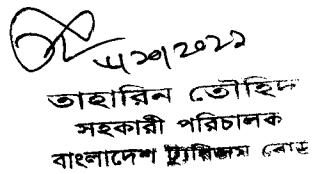 তাহারিন তৌহিদ
সহকারী পরিচালক
বাংলাদেশ ট্যুরিজম বোর্ড